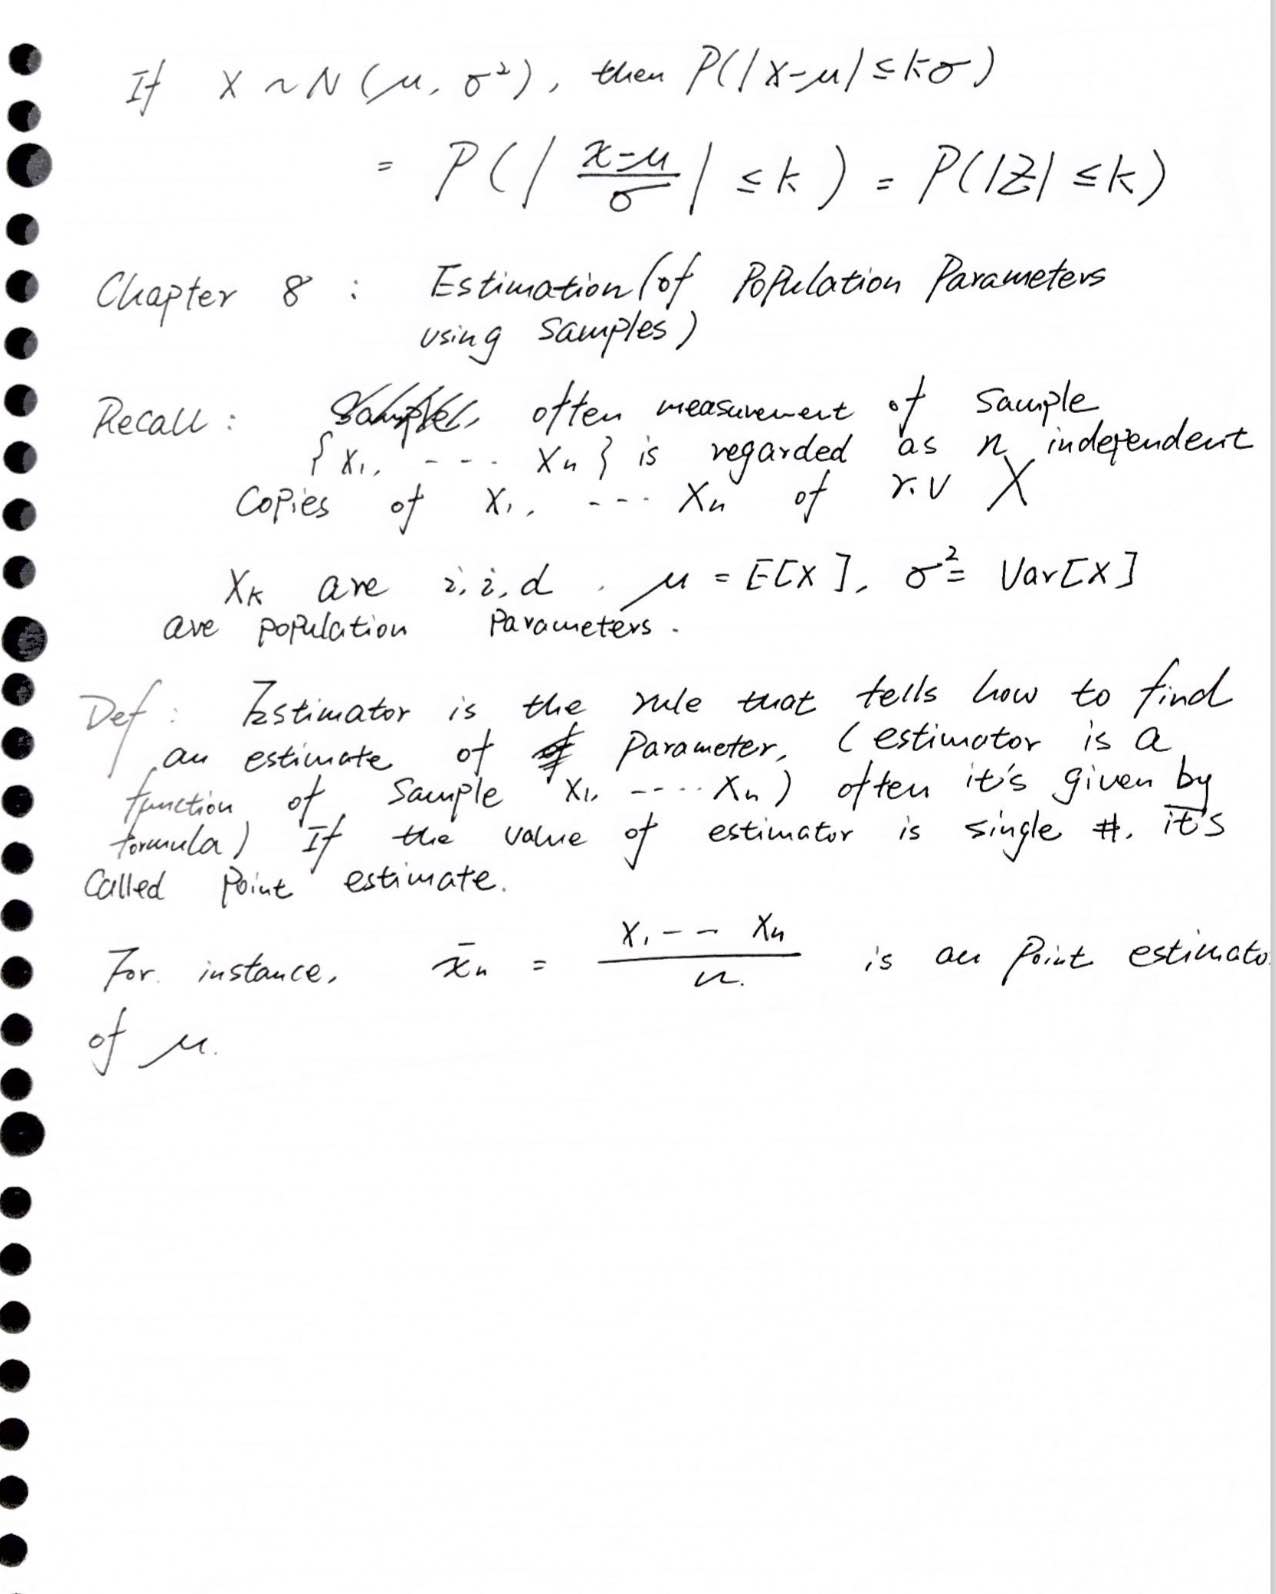 If X ~ N (μ, σ²), then P(|X-μ| ≤ kσ)
= P(| x-μ / σ | ≤ k) = P(|Z| ≤ k)
Chapter 8 : Estimation (of Population Parameters
using samples)
Recall : often measurement of sample
{X₁, ---- Xn} is regarded as n independent
copies of X₁, ---- Xn of r.v X
Xk are i,i,d . μ = E[X], σ² = Var[X]
are population parameters.
Def : Estimator is the rule that tells how to find
an estimate of parameter, (estimator is a
function of sample X₁, ---- Xn) often it's given by
formula) If the value of estimator is single #, it's
called point estimate.
For instance, x̄n = X₁ -- Xn / n. is an point estimato
of μ.